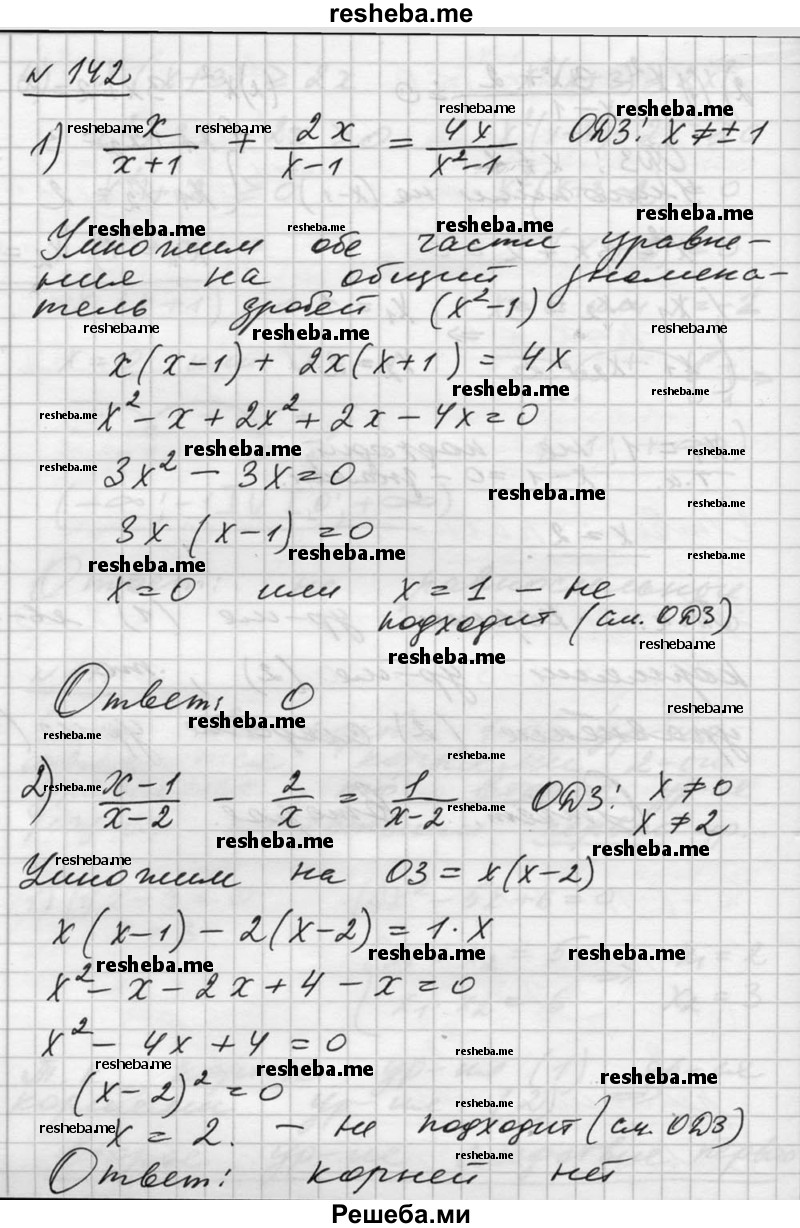 resheba.me
№ 142
1) x/(x+1) + 2x/(x-1) = 4x/(x²-1) ОДЗ: x ≠ ± 1
Умножим обе части уравне-
ния на общий знамена-
тель дробей (x²-1)
x(x-1) + 2x(x+1) = 4x
x² - x + 2x² + 2x - 4x = 0
3x² - 3x = 0
3x (x-1) = 0
x = 0 или x = 1 - не
подходит (см. ОДЗ)
Ответ: 0
2) (x-1)/(x-2) - 2/x = 1/(x-2) ОДЗ: x ≠ 0
x ≠ 2
Умножим на ОЗ = x(x-2)
x(x-1) - 2(x-2) = 1·x
x² - x - 2x + 4 - x = 0
x² - 4x + 4 = 0
(x-2)² = 0
x = 2. - не подходит (см. ОДЗ)
Ответ: корней нет
Решеба.ми